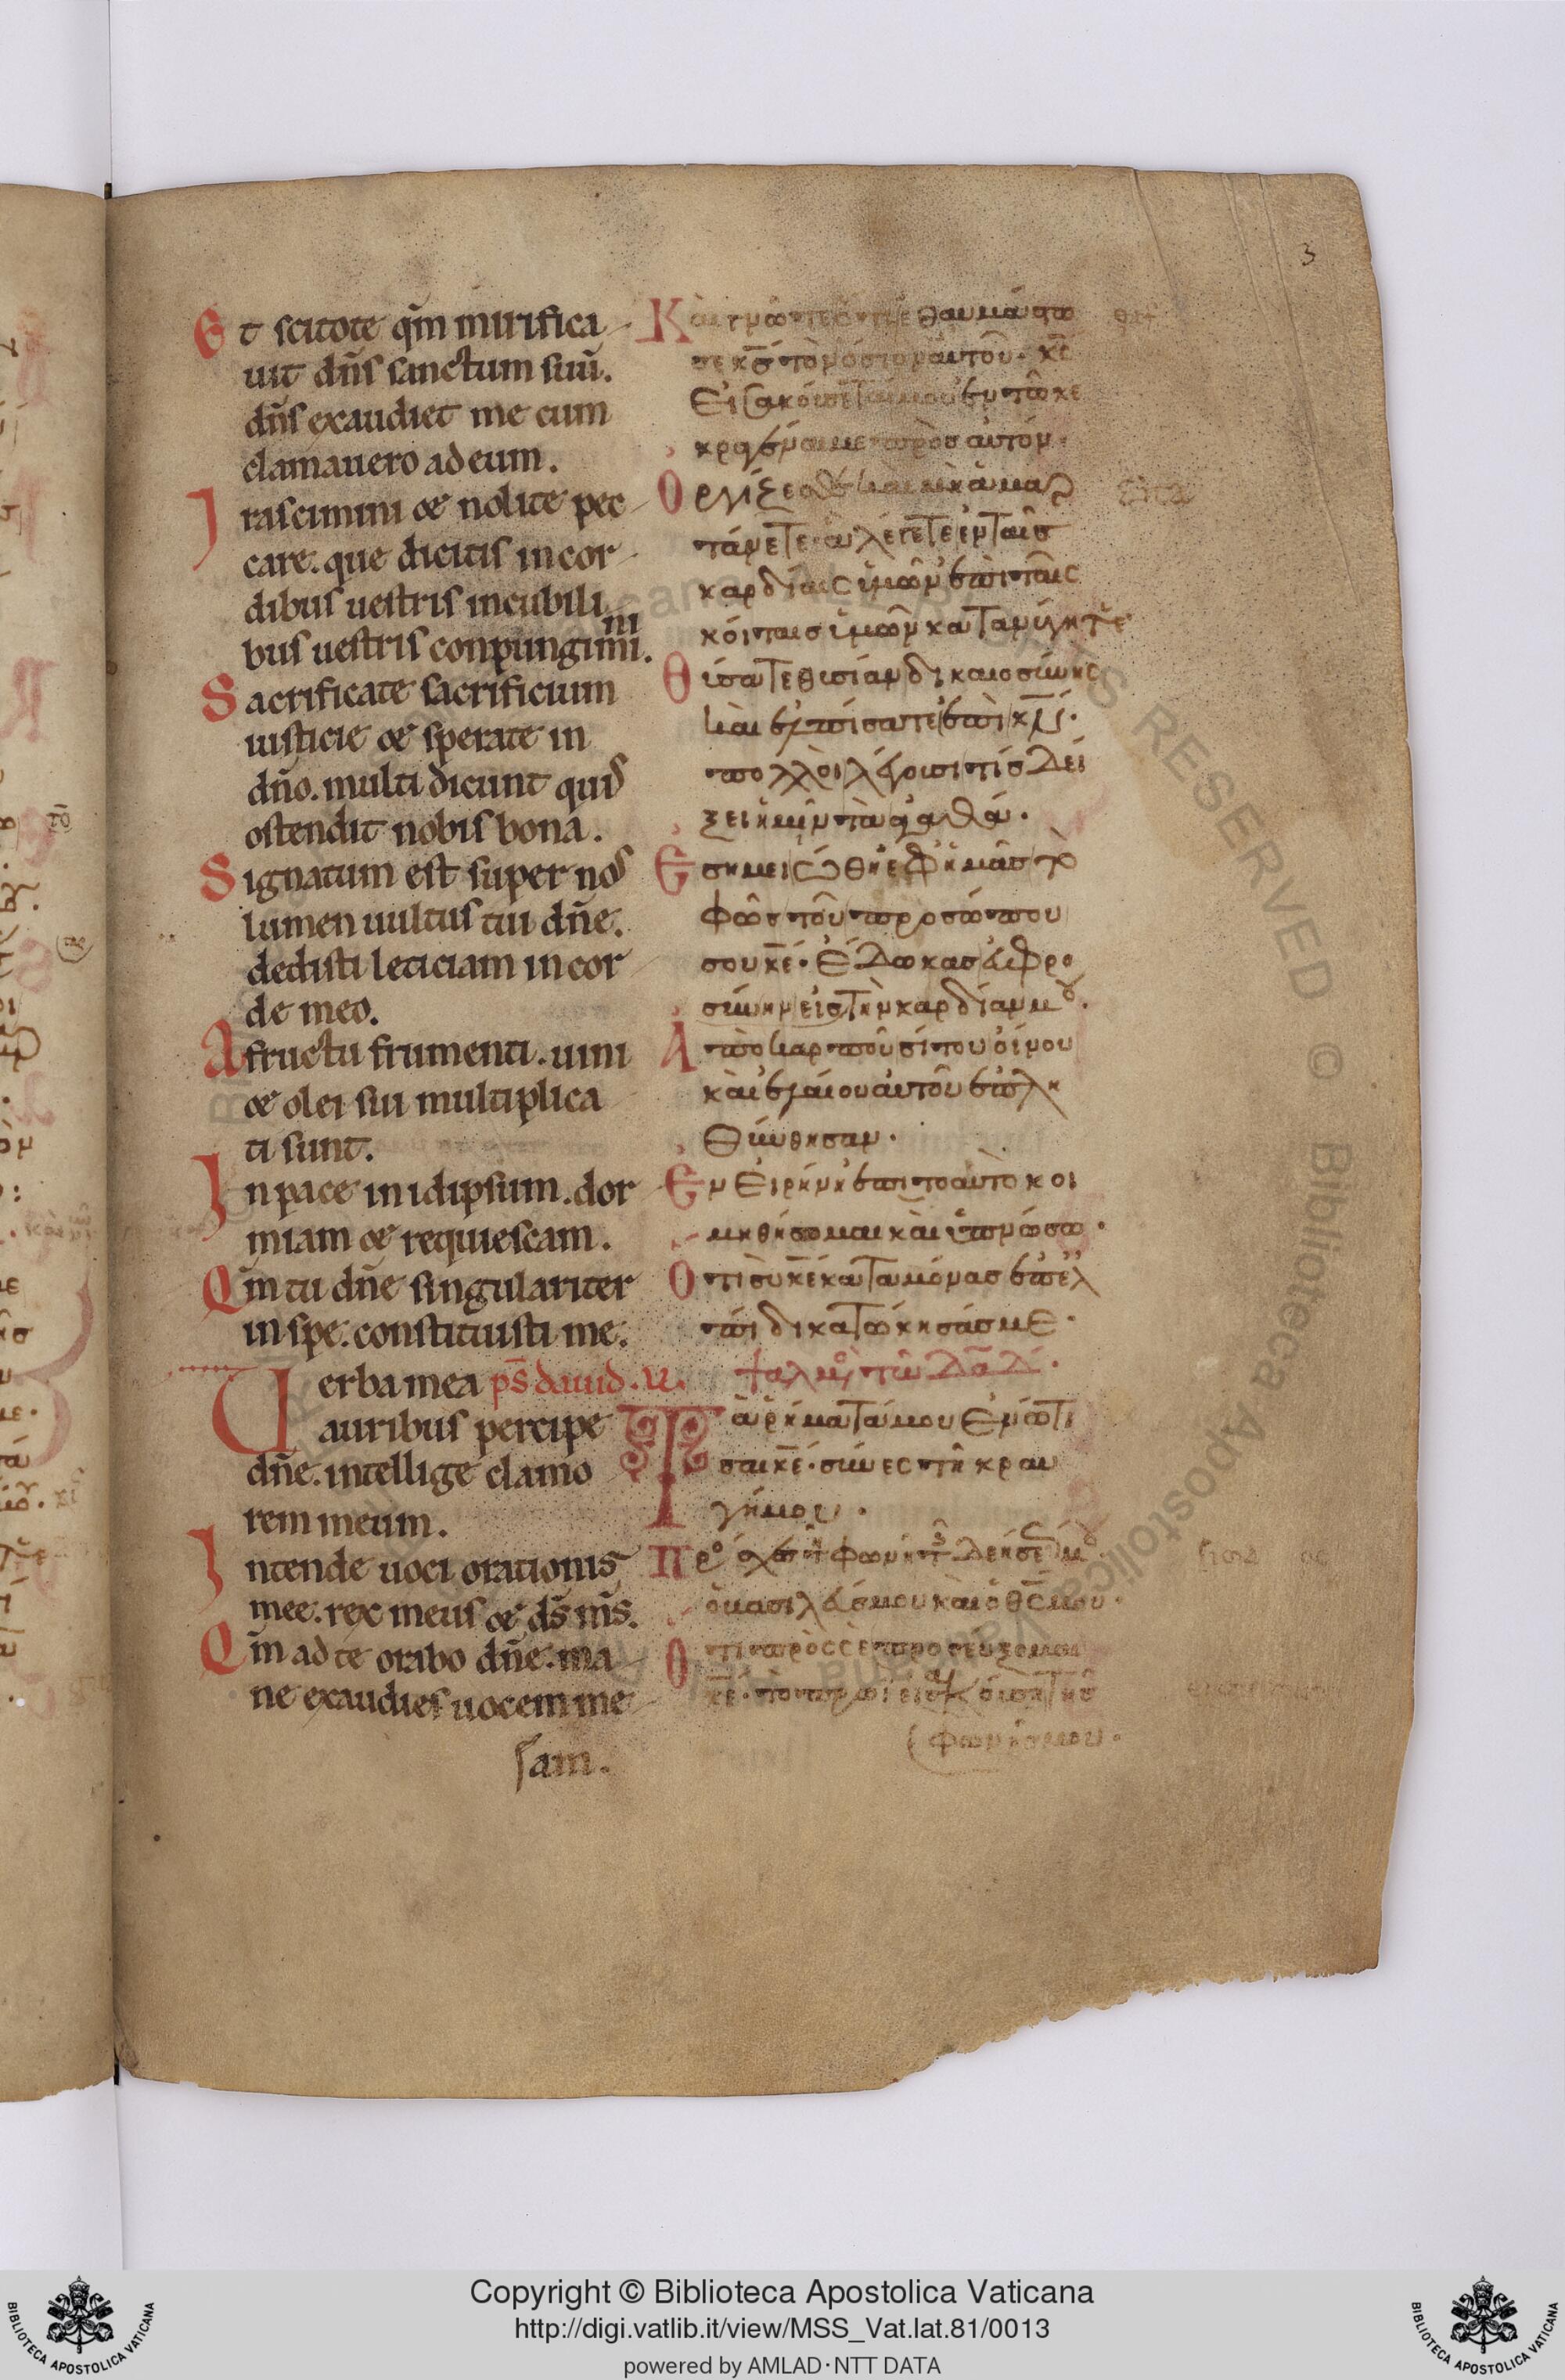 3
Et scitote qm̄ mirifica
uit dn̄s sanctum suū.
dn̄s exaudiet me cum
clamauero ad eum.
Irascimini & nolite pec
care. que dicitis in cor
dibus uestris in cubili
bus uestris conpungimini.
Sacrificate sacrificium
iusticie & sperate in
dn̄o. multi dicunt quis
ostendit nobis bona.
Signatum est super nos
lumen uultus tui dn̄e.
dedisti leticiam in cor
de meo.
A fructu frumenti. uini
& olei sui multiplica
ti sunt.
In pace in idipsum. dor
miam & requiescam.
Qm̄ tu dn̄e singulariter
in spe. constituisti me.
Uerba mea ps̄ dauid. u.
auribus percipe
dn̄e. intellige clamo
rem meum.
Intende uoci orationis
mee. rex meus & ds̄ ms̄.
Qm̄ ad te orabo dn̄e. ma
ne exaudies uocem me
am.
θαυμάστω
σε κ̄σ τὸν όσιον αυτοῦ. κ̄ε
Εἰσακόυσ
κραγέναι με πρὸσ αυτόν.
Οργίζεσθε και μὴ ἁμαρ
τάνετε ἁ λέγετε εν ταῖσ
καρδίαις ὑμῶν επὶ ταῖς
κόιταισ ὑμῶν κατανύγητε
Θύσατε θυσίαν δικαιοσύνης
κὰι ελπίσατε επὶ κ̄ν.
πολλὸι λέγουσι τίσ δεί
ξει ἡμῖν τὰ αγαθά.
Εσημειώθη εφ ἡμᾶσ τὸ
φῶσ τοῦ προσώπου
σου κ̄ε. Έδωκασ ευφρο
σύνην εἰσ τὴν καρδίαν μου.
Απὸ καρποῦ σίτου οίνου
κὰι ελαίου αυτοῦ επλη
θύνθησαν.
Εν Ειρήνη επι το αυτὸ κοι
μηθήσομαι κὰι ὑπνώσω.
Οτι σὺ κ̄ε καταμόνασ επ ελ
πίδι κατώκησάσ με.
ψαλμὸς τῶ Δᾱδ.
Τὰ ρήματά μου Ενώτι
σαι κ̄ε. σύνες τῆ κραυ
γή μου.
Πρόσχες τῆ φωνῆ τῆς δεήσεώς μου.
ὁ βασιλεύς μου κὰι ὁ θ̄ς μου.
Οτι πρὸς σὲ προσεύξομαι
κ̄ε. τὸ πρωὶ εισακόυση τῆσ
φωνῆσ μου.
Copyright © Biblioteca Apostolica Vaticana
http://digi.vatlib.it/view/MSS_Vat.lat.81/0013
powered by AMLAD·NTT DATA
BIBLIOTECA APOSTOLICA VATICANA
BIBLIOTECA APOSTOLICA VATICANA